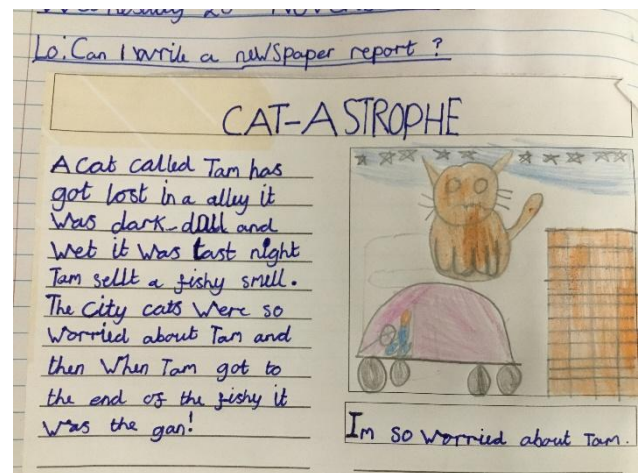 Lo: Can I write a newspaper report ?
CAT-ASTROPHE
A cat called Tam has
got lost in a alley it
was dark-dull and
wet it was last night
Tam sellt a fishy smell.
The city cats were so
worried about Tam and
then when Tam got to
the end of the fishy it
was the gan!
Im so worried about Tam.